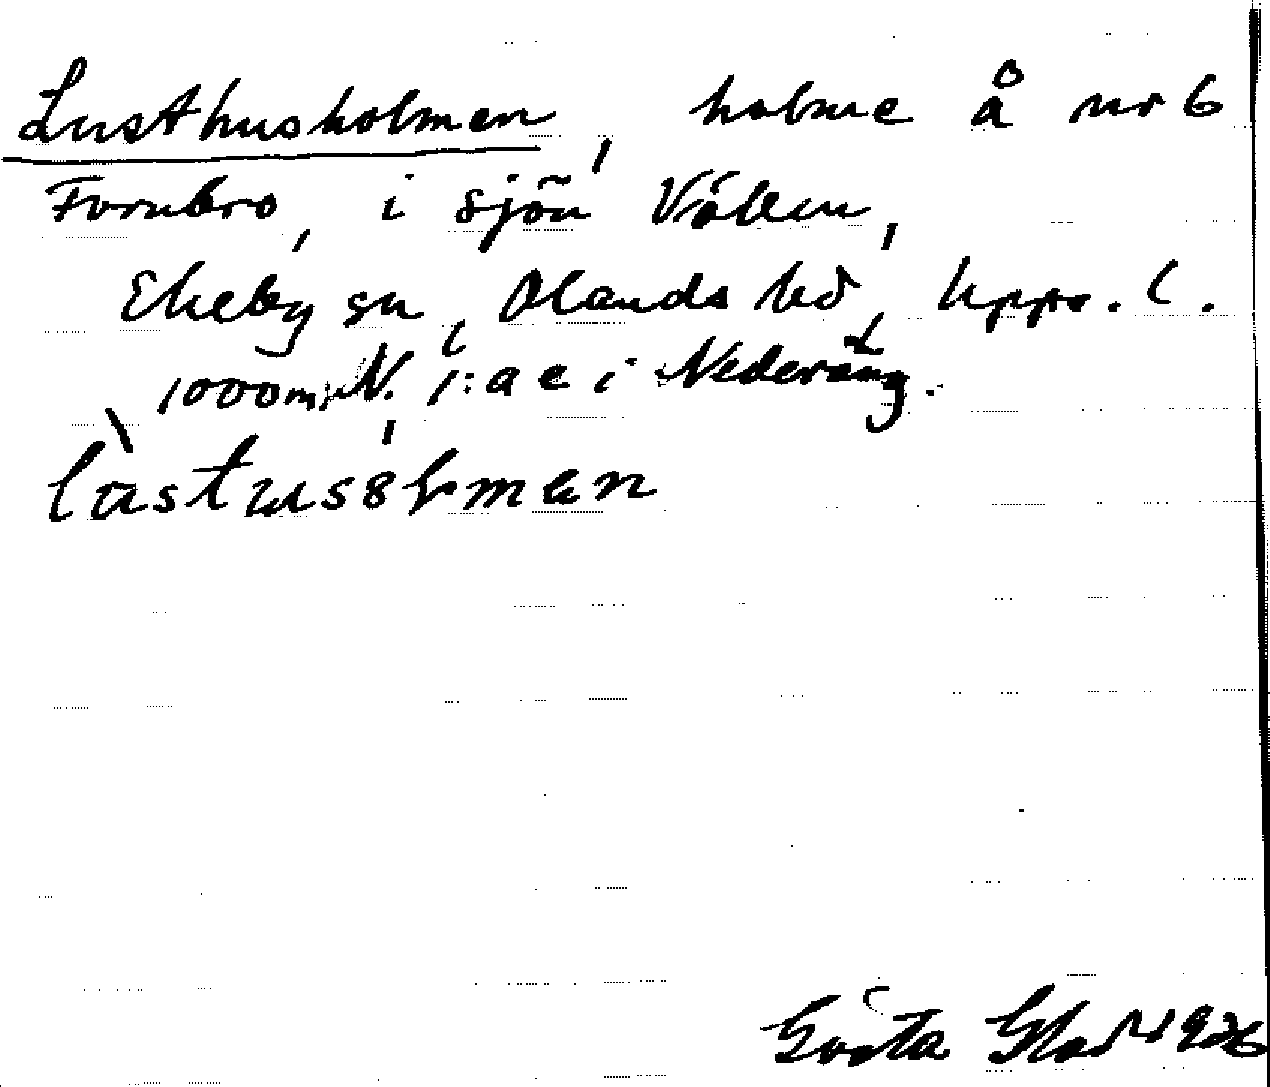 Lusthusholmen, holme å nr 6
Fornbro, i sjön Vällen,
Ekeby sn, Olands hd, Upps. l.
1000 m N. 1:a e i Nederäng.
lùstusólmen
Gösta Glad 1926